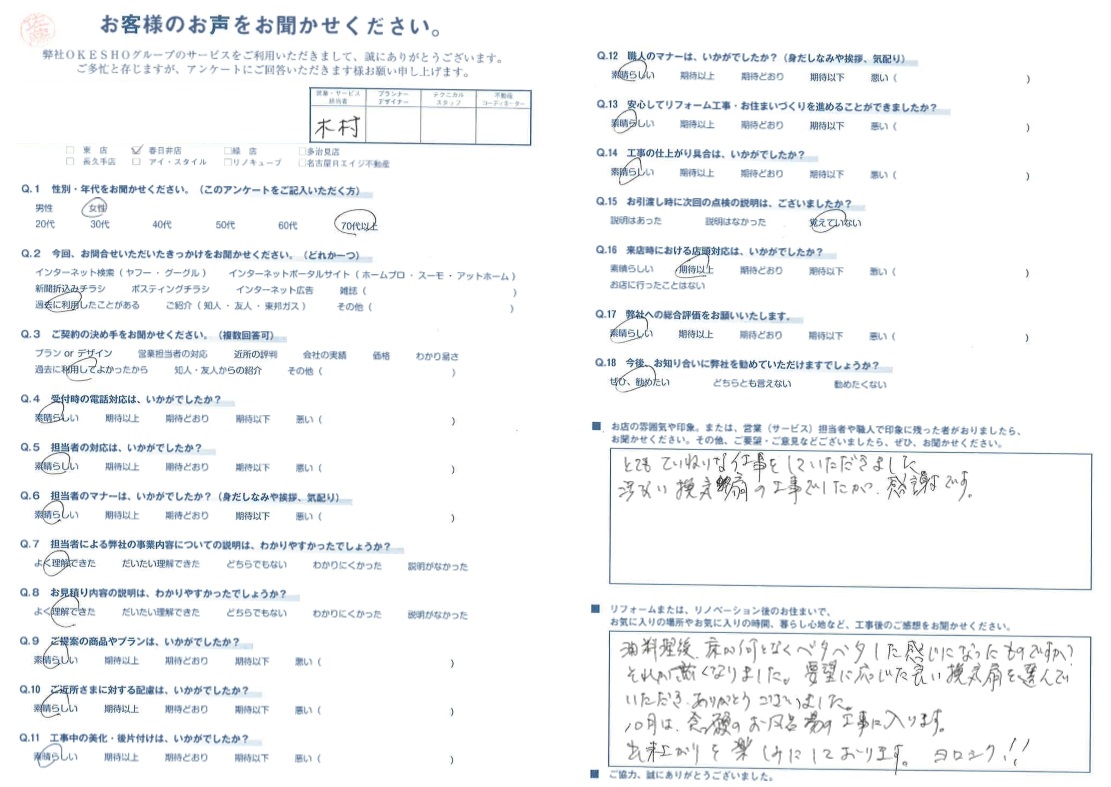 お客様のお声をお聞かせください。
弊社OKESHOグループのサービスをご利用いただきまして、誠にありがとうございます。
ご多忙と存じますが、アンケートにご回答いただきます様お願い申し上げます。
営業・サービス 担当者 プランナー デザイナー テクニカル スタッフ 不動産 コーディネーター
木村
東店 春日井店 緑店 多治見店
長久手店 アイ・スタイル リノキューブ 名古屋Rエイジ不動産
Q.1 性別・年代をお聞かせください。（このアンケートをご記入いただく方）
男性 女性
20代 30代 40代 50代 60代 70代以上
Q.2 今回、お問合せいただいたきっかけをお聞かせください。（どれか一つ）
インターネット検索（ヤフー・グーグル） インターネットポータルサイト（ホームプロ・スーモ・アットホーム）
新聞折込みチラシ ポスティングチラシ インターネット広告 雑誌（ ）
過去に利用したことがある ご紹介（知人・友人・東邦ガス） その他（ ）
Q.3 ご契約の決め手をお聞かせください。（複数回答可）
プラン or デザイン 営業担当者の対応 近所の評判 会社の実績 価格 わかり易さ
過去に利用してよかったから 知人・友人からの紹介 その他（ ）
Q.4 受付時の電話対応は、いかがでしたか？
素晴らしい 期待以上 期待どおり 期待以下 悪い（ ）
Q.5 担当者の対応は、いかがでしたか？
素晴らしい 期待以上 期待どおり 期待以下 悪い（ ）
Q.6 担当者のマナーは、いかがでしたか？（身だしなみや挨拶、気配り）
素晴らしい 期待以上 期待どおり 期待以下 悪い（ ）
Q.7 担当者による弊社の事業内容についての説明は、わかりやすかったでしょうか？
よく理解できた だいたい理解できた どちらでもない わかりにくかった 説明がなかった
Q.8 お見積り内容の説明は、わかりやすかったでしょうか？
よく理解できた だいたい理解できた どちらでもない わかりにくかった 説明がなかった
Q.9 ご提案の商品やプランは、いかがでしたか？
素晴らしい 期待以上 期待どおり 期待以下 悪い（ ）
Q.10 ご近所さまに対する配慮は、いかがでしたか？
素晴らしい 期待以上 期待どおり 期待以下 悪い（ ）
Q.11 工事中の美化・後片付けは、いかがでしたか？
素晴らしい 期待以上 期待どおり 期待以下 悪い（ ）
Q.12 職人のマナーは、いかがでしたか？（身だしなみや挨拶、気配り）
素晴らしい 期待以上 期待どおり 期待以下 悪い（ ）
Q.13 安心してリフォーム工事・お住まいづくりを進めることができましたか？
素晴らしい 期待以上 期待どおり 期待以下 悪い（ ）
Q.14 工事の仕上がり具合は、いかがでしたか？
素晴らしい 期待以上 期待どおり 期待以下 悪い（ ）
Q.15 お引渡し時に次回の点検の説明は、ございましたか？
説明はあった 説明はなかった 覚えていない
Q.16 来店時における店頭対応は、いかがでしたか？
素晴らしい 期待以上 期待どおり 期待以下 悪い（ ）
お店に行ったことはない
Q.17 弊社への総合評価をお願いいたします。
素晴らしい 期待以上 期待どおり 期待以下 悪い（ ）
Q.18 今後、お知り合いに弊社を勧めていただけますでしょうか？
ぜひ、勧めたい どちらとも言えない 勧めたくない
お店の雰囲気や印象。または、営業（サービス）担当者や職人で印象に残った者がおりましたら、
お聞かせください。その他、ご要望・ご意見などございましたら、ぜひ、お聞かせください。
とても ていねいな仕事をしていただきました
換気扇の工事でしたが、感謝です。
リフォームまたは、リノベーション後のお住まいで、
お気に入りの場所やお気に入りの時間、暮らし心地など、工事後のご感想をお聞かせください。
油料理後、床が何となくベタベタした感じになったものですが
それが無くなりました。要望に応じた良い換気扇を選んで
いただき、ありがとうございました。
10月は、念願のお風呂場の工事に入ります。
出来上がりを楽しみにしております。 ヨロシク!!
ご協力、誠にありがとうございました。